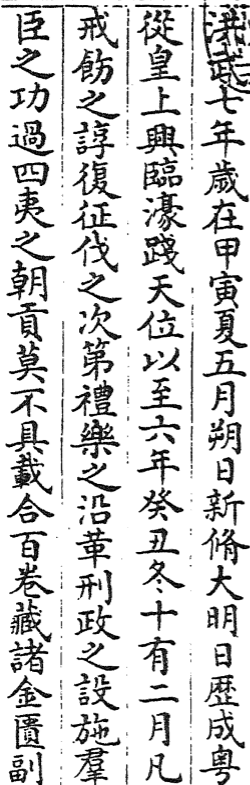 洪武七年歲在甲寅夏五月朔日新脩大明日歴成粤
從皇上興臨濠踐天位以至六年癸丑冬十有二月凡
戒飭之諄復征伐之次第禮樂之沿革刑政之設施羣
臣之功過四夷之朝貢莫不具載合百卷藏諸金匱副